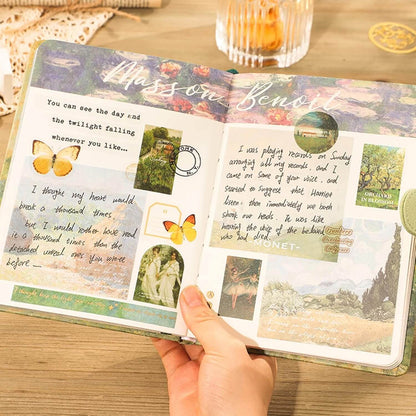 Musson Benoit
You can see the day and
the twilight falling
whenever you like...
I thought my heart would
break a thousand times
but I would rather have read
it a thousand times than the
detached word ones you wrote
before
I was playing records on Sunday
arranging all my records, and I
came on some of your voice, and
started to suggest that Harriet
listen: then immediately we both
shook our heads. It was like
hearing the voice of the beloved
who had died.
MONET
ORCHARD
IN BLOSSOM